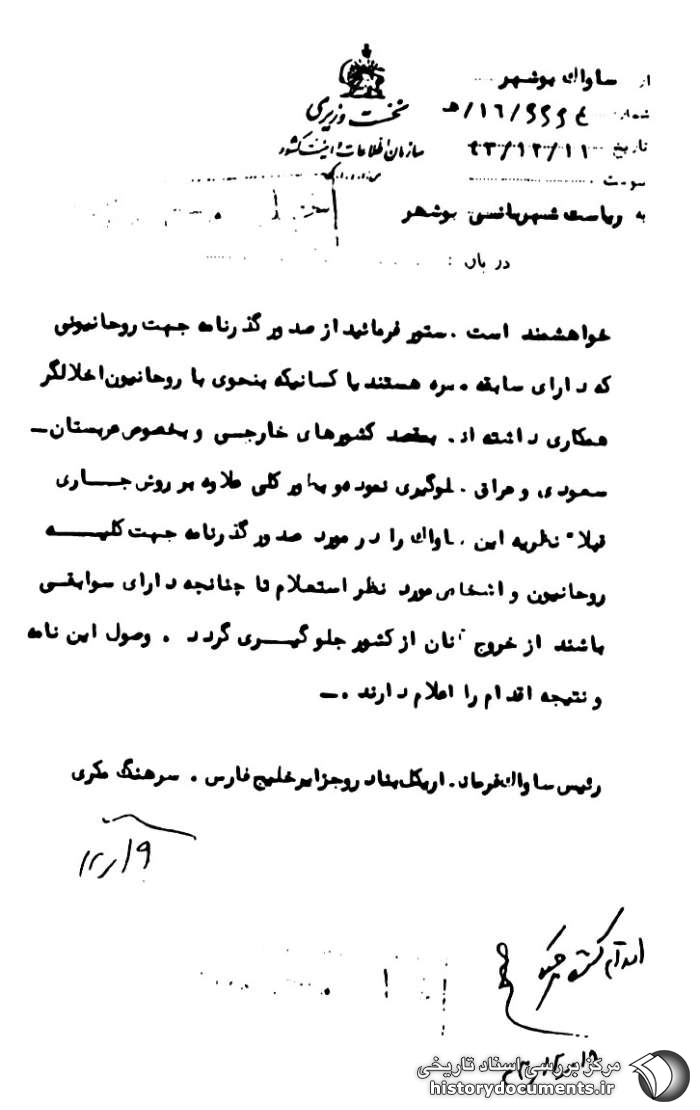 نخست وزیری
سازمان اطلاعات و امنیت کشور
از ساواك بوشهر
شماره ۹۹۹۴/۱۶/هـ
تاریخ ۴۳/۱۲/۱۱
به ریاست شهربانی بوشهر
در باره :
خواهشمند است دستور فرمائید از صدور گذرنامه جهت روحانیونی
که دارای سابقه هستند یا کسانیکه بنحوی با روحانیون اخلالگر
همکاری داشته اند بمقصد کشورهای خارجی و بخصوص عربستان ـ
سعودی و عراق جلوگیری نموده و بطور کلی علاوه بر روش جاری
قبلا" نظریه این ساواك را در مورد صدور گذرنامه جهت کلیه
روحانیون و اشخاص مورد نظر استعلام تا چنانچه دارای سوابقی
باشند از خروج آنان از کشور جلوگیری گردد . وصول این نامه
و نتیجه اقدام را اعلام دارند .ـ
رئیس ساواك فرمانداریکل بنادر و جزایر خلیج فارس . سرهنگ مکری
۱۲/۹
مرکز بررسی اسناد تاریخی
historydocuments.ir